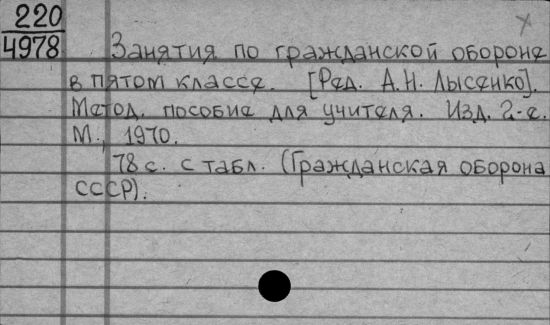 220
4978
Занятия по гражданской обороне
в пятом классе. [Ред. А.Н. Лысенко].
Метод. пособие для учителя. Изд. 2-е.
М., 1970.
78 с. с табл. (Гражданская оборона
СССР).